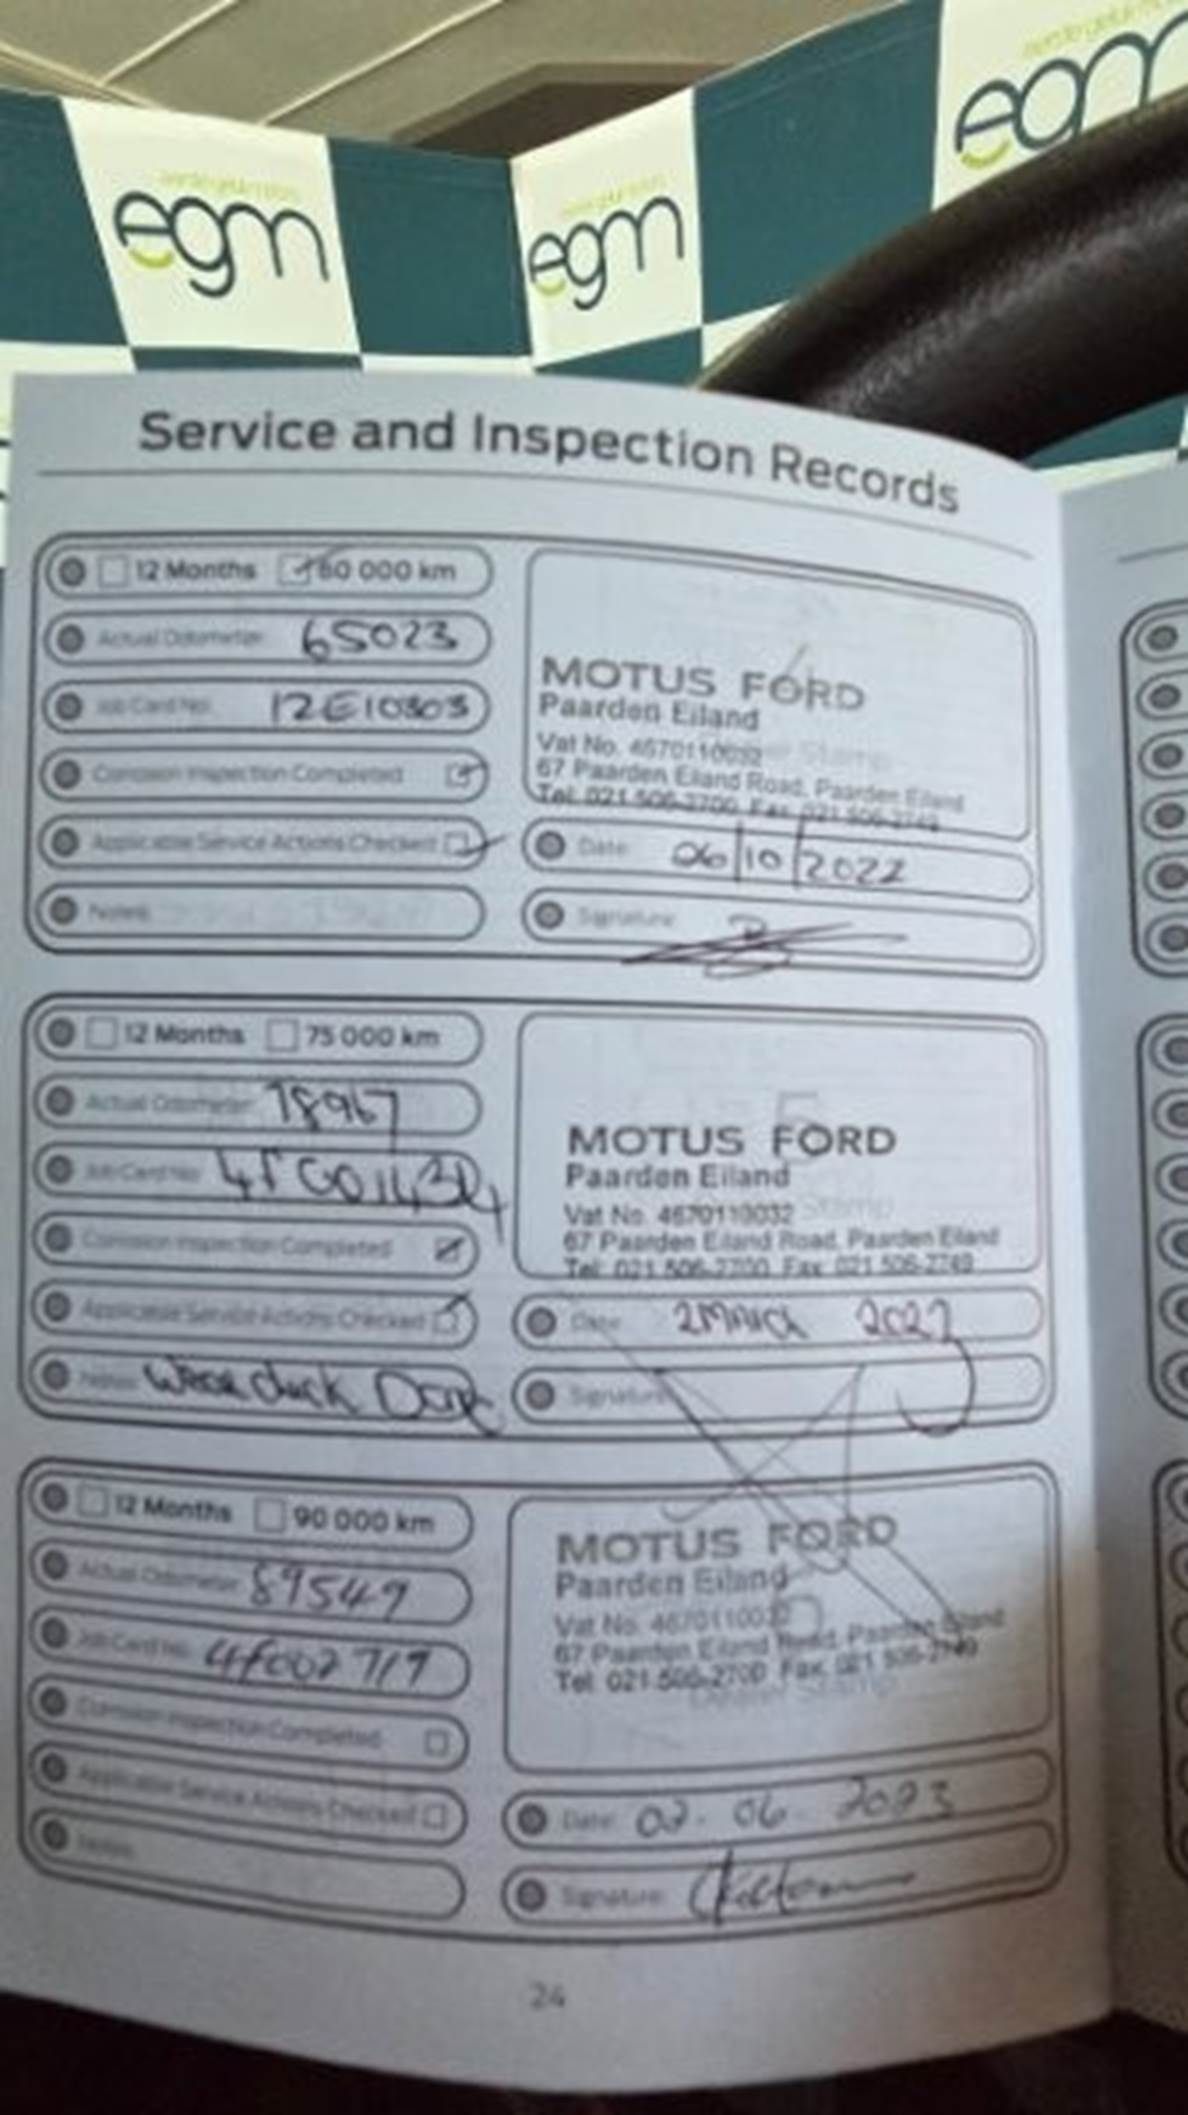 egm
egm
egm
Service and Inspection Records
12 Months 60 000 km
Actual Odometer: 65023
Job Card No: 12E10303
Corrosion Inspection Completed
Applicable Service Actions Checked
Notes:
MOTUS FORD
Paarden Eiland
Vat No. 4670110032
67 Paarden Eiland Road, Paarden Eiland
Tel: 021 506-2700 Fax: 021 506-2749
Date: 06/10/2022
Signature:
12 Months 75 000 km
Actual Odometer: 78967
Job Card No:
Corrosion Inspection Completed
Applicable Service Actions Checked
Notes: Done
MOTUS FORD
Paarden Eiland
Vat No. 4670110032
67 Paarden Eiland Road, Paarden Eiland
Tel: 021 506-2700 Fax: 021 506-2749
Date: 2023
Signature:
12 Months 90 000 km
Actual Odometer: 89549
Job Card No: 4f002719
Corrosion Inspection Completed
Applicable Service Actions Checked
Notes:
MOTUS FORD
Paarden Eiland
Vat No. 4670110032
67 Paarden Eiland Road, Paarden Eiland
Tel: 021 506-2700 Fax: 021 506-2749
Dealer Stamp
Date: 02. 06. 2023
Signature:
24